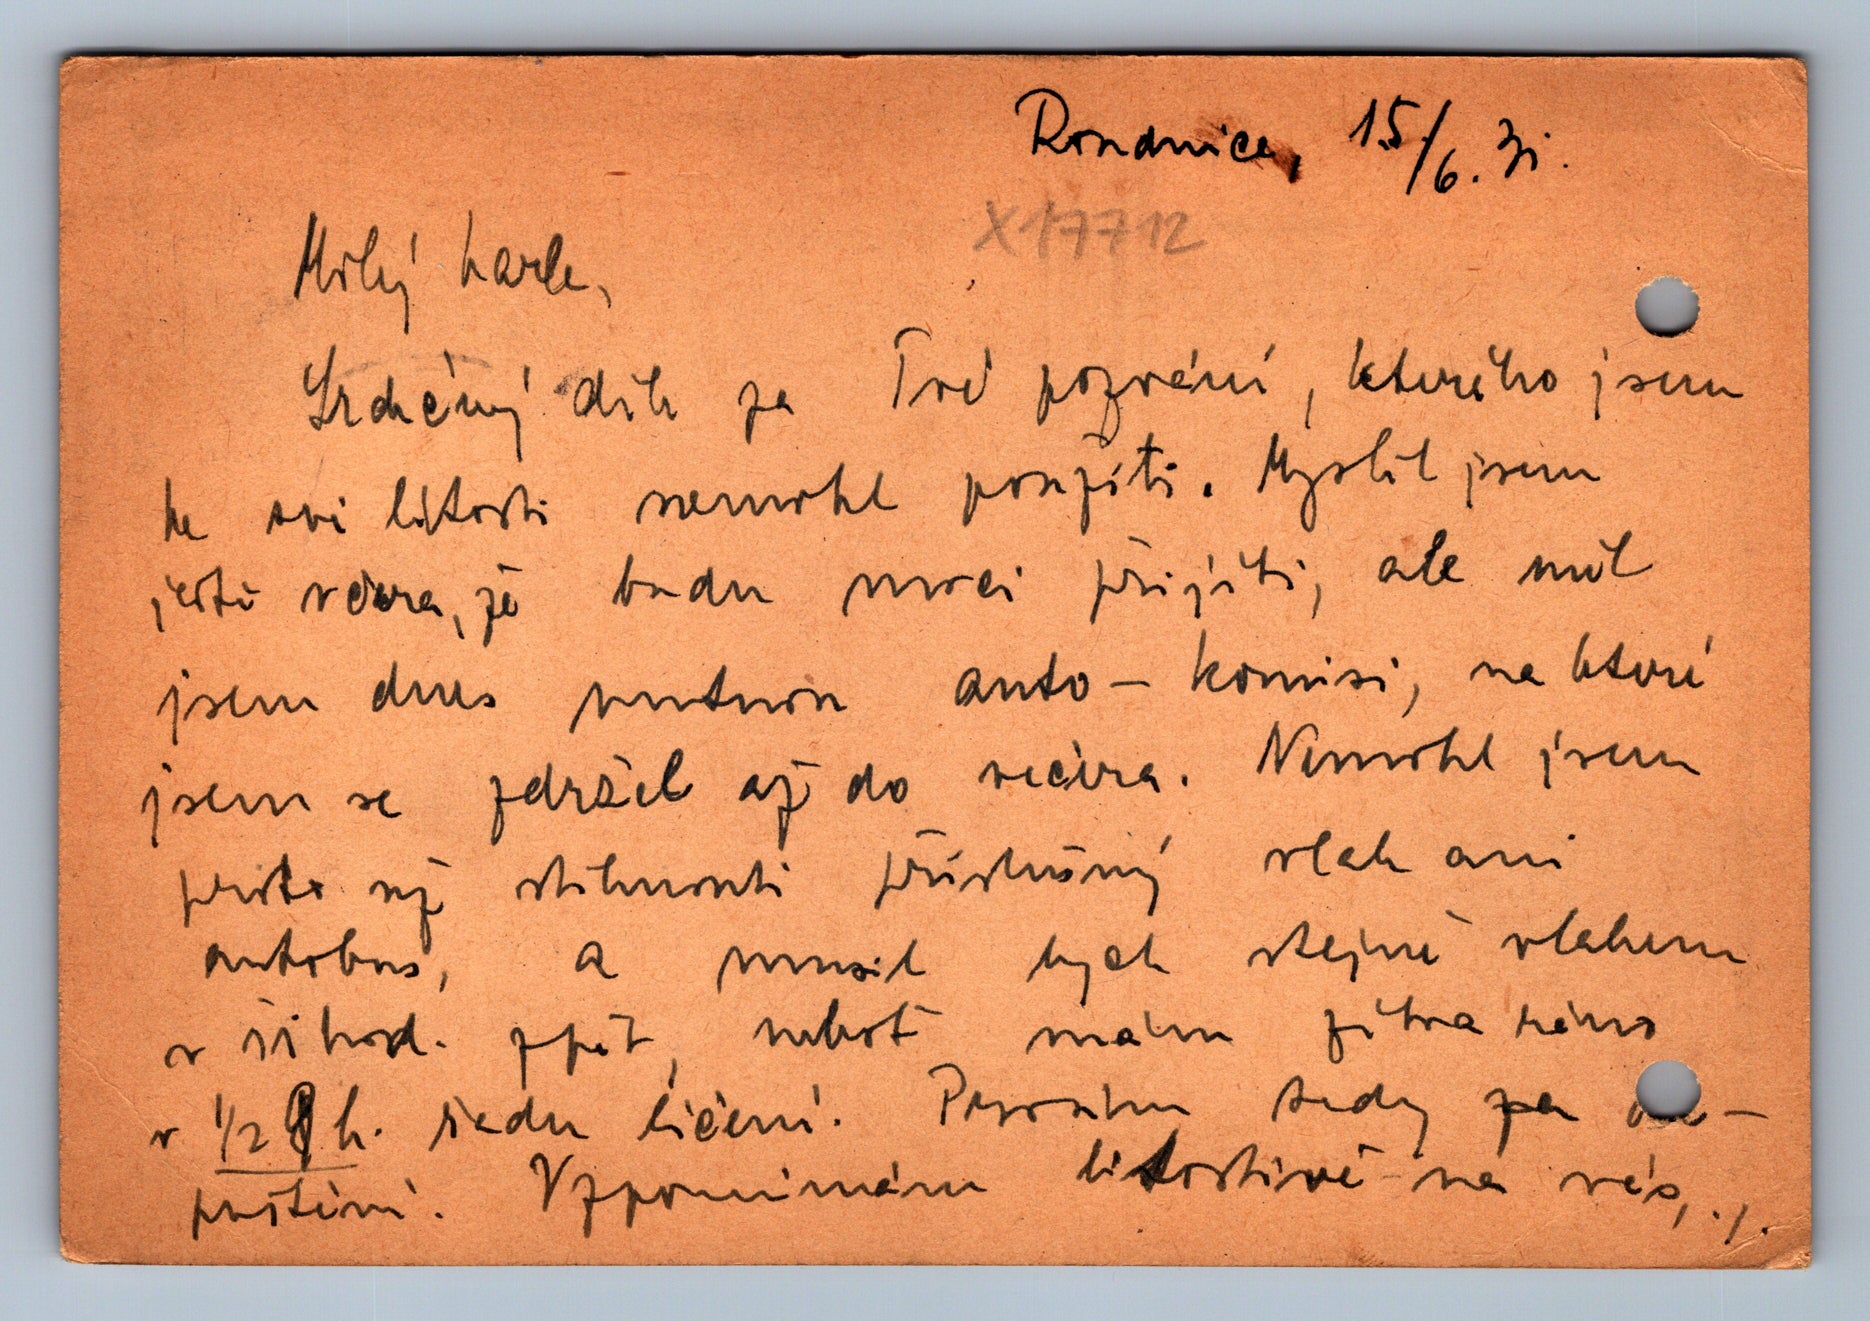 Roudnice, 15/6. 31.
X17712
Milý Karle,
Srdečný dík za Tvé pozvání, kterého jsem
ke své lítosti nemohl použíti. Myslil jsem
ještě včera, že budu moci přijíti, ale měl
jsem dnes nutnou auto-komisi, na které
jsem se zdržel až do večera. Nemohl jsem
proto už stihnouti příslušný vlak ani
autobus, a musil bych stejně vlakem
v 11 hod. zpět, neboť mám zítra ráno
v 1/2 9 h. řadu líčení. Prosím tedy za od-
puštění. Vzpomínám lítostivě na vás, ./.